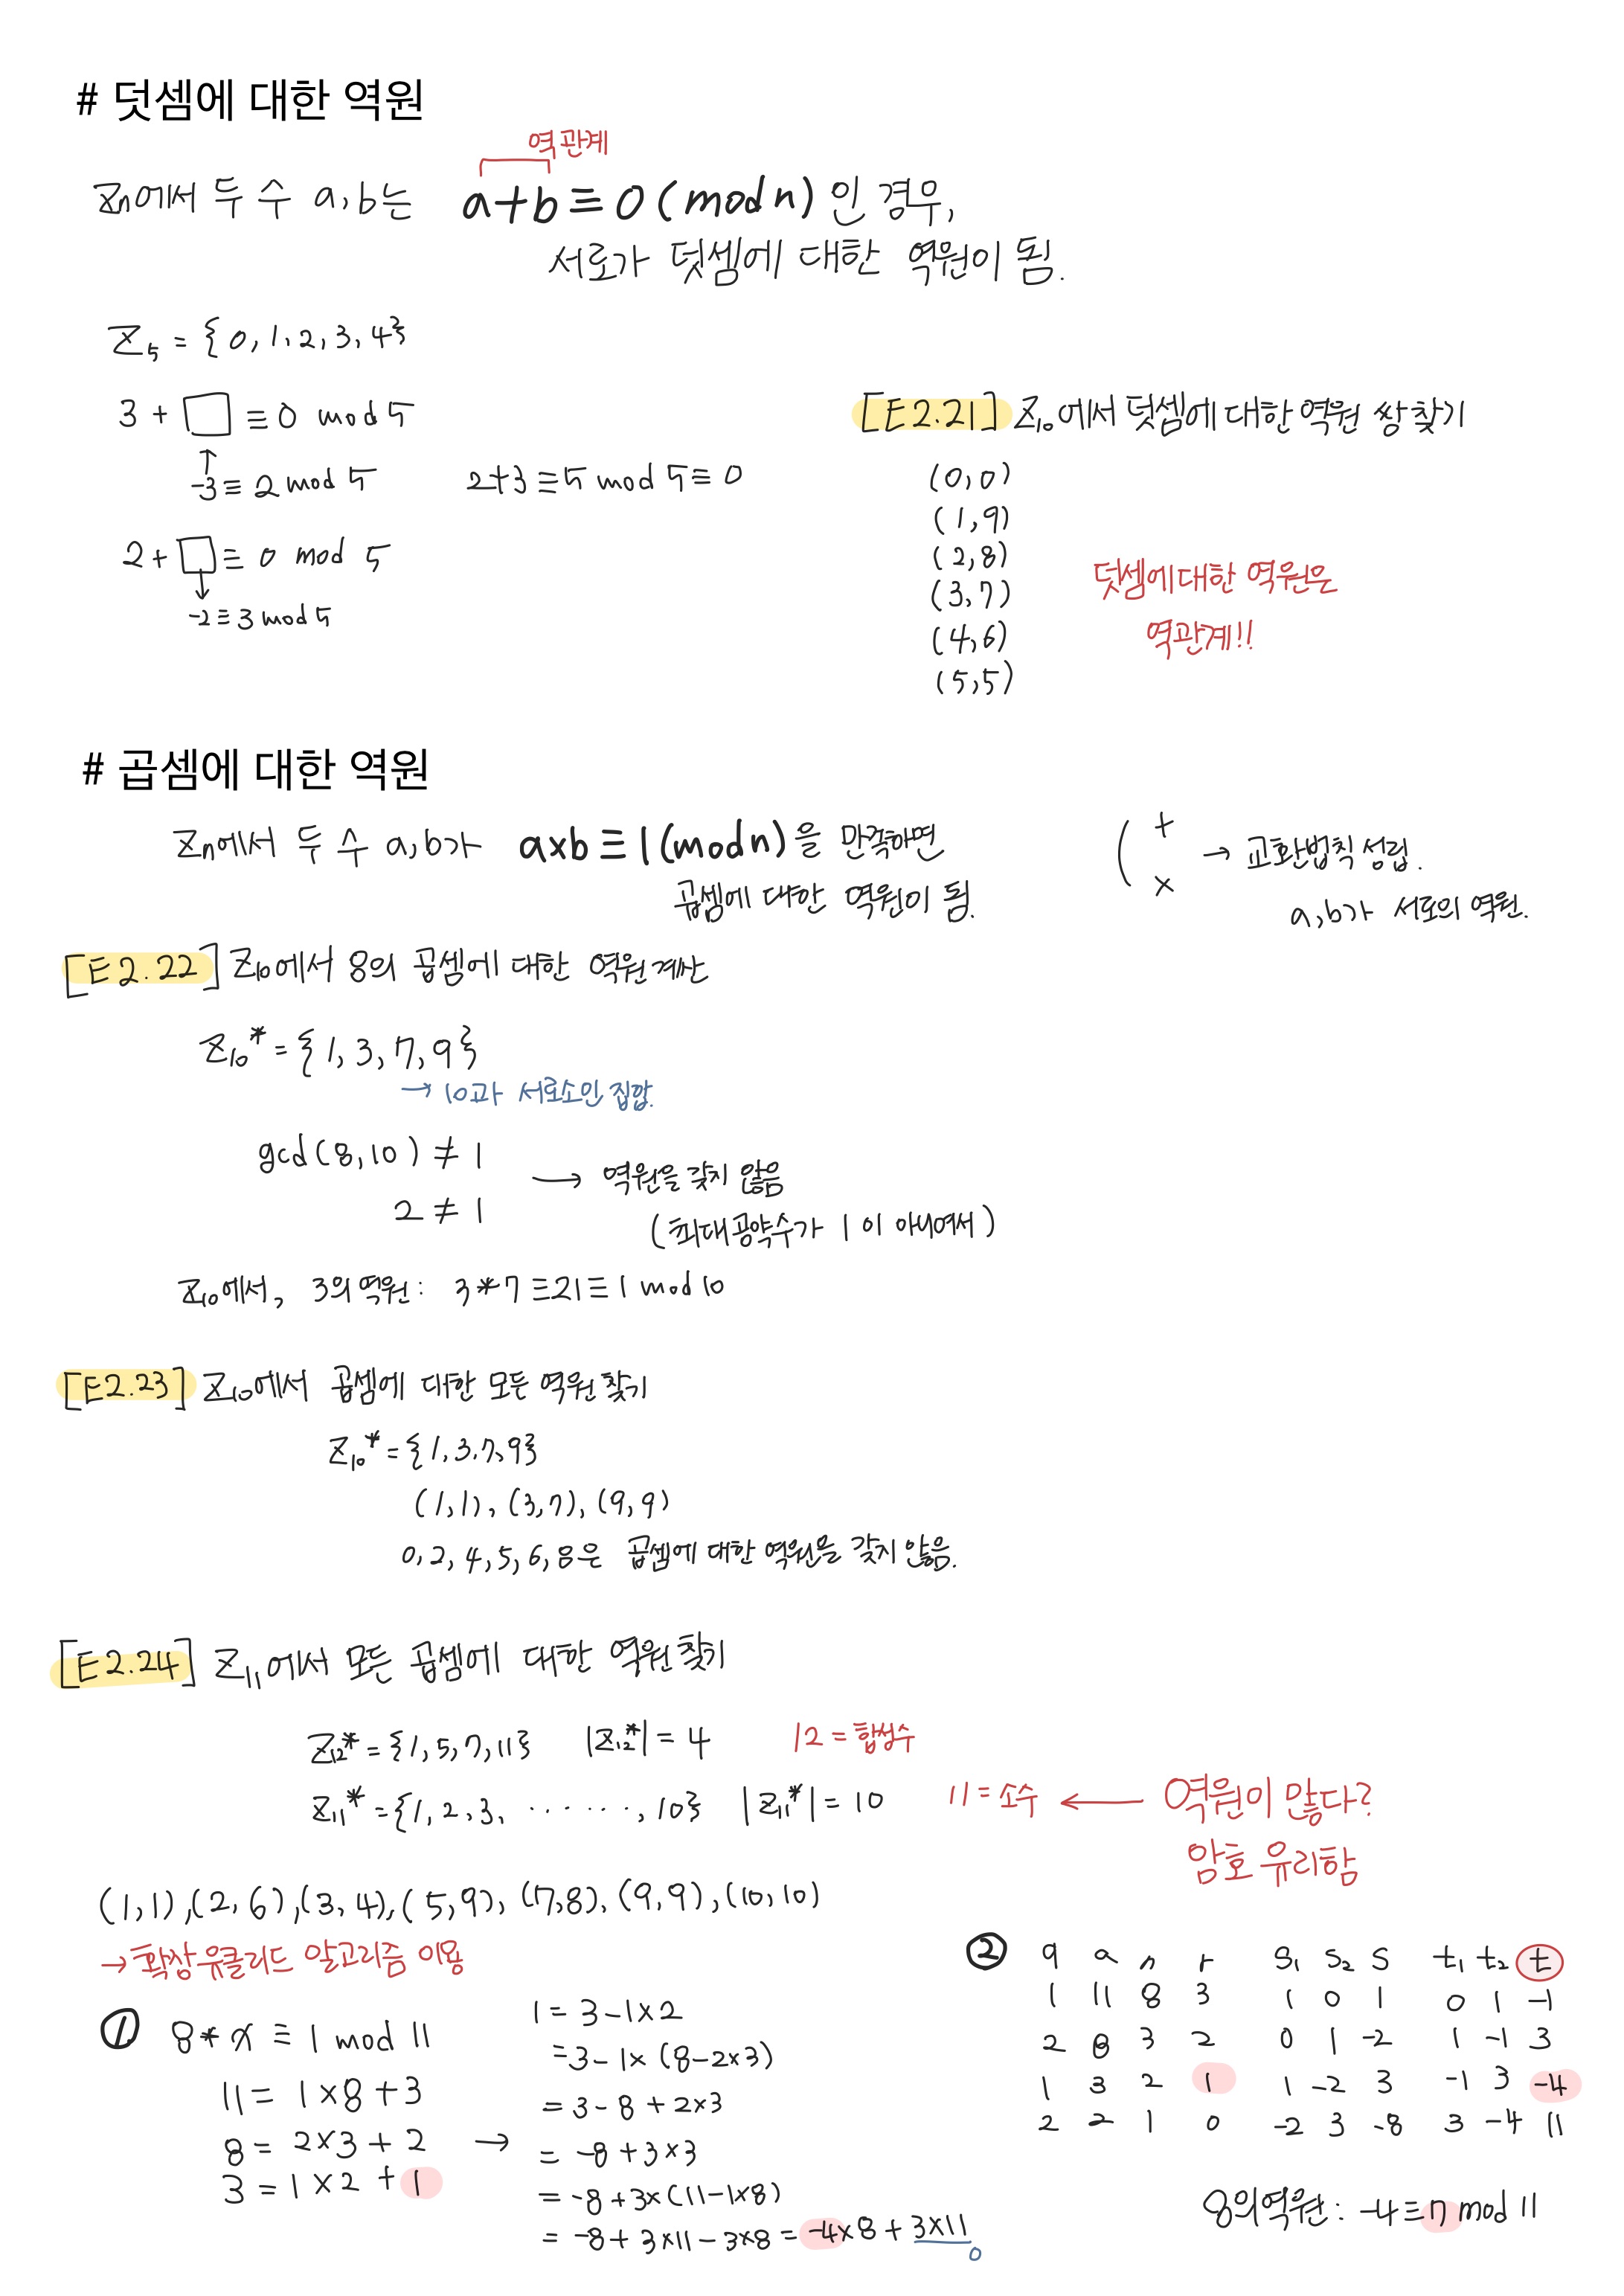 # 덧셈에 대한 역원
역관계
Zn에서 두 수 a,b는 a+b≡0(mod n)인 경우,
서로가 덧셈에 대한 역원이 됨.
Z5 = {0, 1, 2, 3, 4}
3 + □ ≡ 0 mod 5
↑
-3 ≡ 2 mod 5 2+3 ≡ 5 mod 5 ≡ 0
2 + □ ≡ 0 mod 5
↓
-2 ≡ 3 mod 5
[E 2.21] Z10에서 덧셈에 대한 역원 쌍 찾기
(0,0)
(1,9)
(2,8)
(3,7)
(4,6)
(5,5)
덧셈에 대한 역원은
역관계!!
# 곱셈에 대한 역원
Zn에서 두 수 a,b가 a×b≡1(mod n)을 만족하면
곱셈에 대한 역원이 됨.
( + × → 교환법칙 성립.
a,b가 서로의 역원.
[E 2.22] Z10에서 8의 곱셈에 대한 역원 계산
Z10* = {1, 3, 7, 9}
→ 10과 서로소인 집합.
gcd(8,10) ≠ 1
2 ≠ 1
→ 역원을 갖지 않음
(최대공약수가 1이 아니여서)
Z10에서, 3의 역원 : 3*7 ≡ 21 ≡ 1 mod 10
[E2.23] Z10에서 곱셈에 대한 모든 역원 찾기
Z10* = {1, 3, 7, 9}
(1,1), (3,7), (9,9)
0, 2, 4, 5, 6, 8은 곱셈에 대한 역원을 갖지 않음.
[E 2.24] Z11에서 모든 곱셈에 대한 역원 찾기
Z12* = {1, 5, 7, 11} |Z12*| = 4 12 = 합성수
Z11* = {1, 2, 3, ······, 10} |Z11*| = 10 11 = 소수 ← 역원이 많다?
암호 유리함
(1,1),(2,6),(3,4),(5,9),(7,8),(9,9),(10,10)
→ 확장 유클리드 알고리즘 이용
① 8*x ≡ 1 mod 11
11 = 1×8+3
8 = 2×3+2 →
3 = 1×2+1
1 = 3-1×2
= 3-1×(8-2×3)
= 3-8+2×3
= -8+3×3
= -8+3×(11-1×8)
= -8+3×11-3×8 = -4×8+3×11
0
② q a n r s1 s2 s t1 t2 t
1 11 8 3 1 0 1 0 1 -1
2 8 3 2 0 1 -2 1 -1 3
1 3 2 1 1 -2 3 -1 3 -4
2 2 1 0 -2 3 -8 3 -4 11
8의 역원 : -4 ≡ 7 mod 11